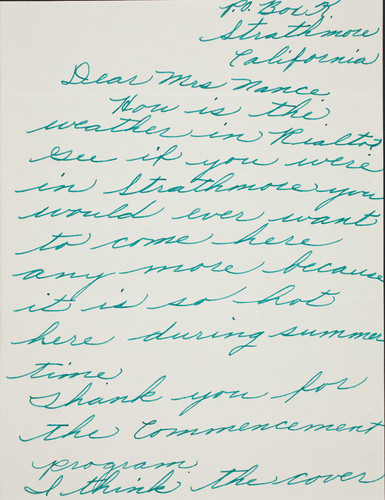 P.O. Box K
Strathmore
California
Dear Mrs Nance
How is the
weather in Rialto?
See if you were
in Strathmore you
would ever want
to come here
any more because
it is so hot
here during summer
time
Thank you for
the Commencement
program.
I think the cover